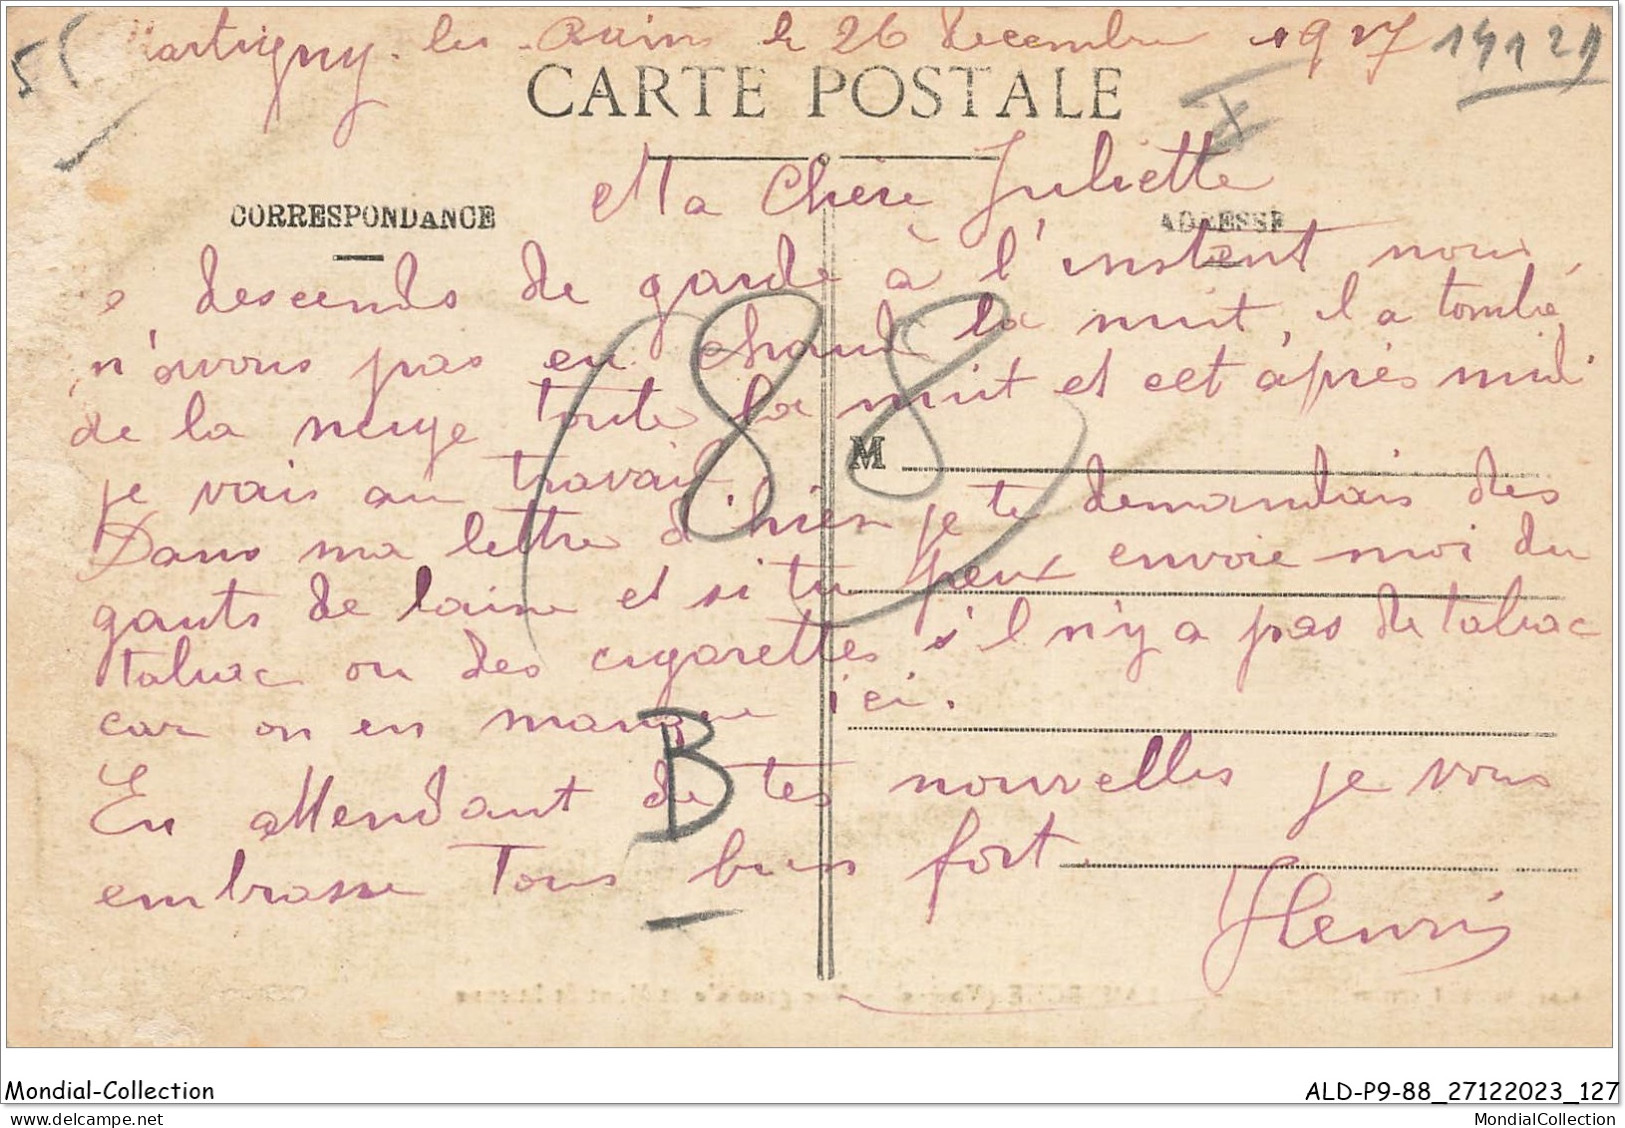 Martigny les Bains le 26 Decembre 1917 141 29
CARTE POSTALE
Ma Chère Juliette
CORRESPONDANCE ADRESSE
e descends de garde à l'instent nous
n'avons pas eu chaud la nuit, il a tombé
de la neige toute la nuit et cet après midi
M
je vais au travail.
Dans ma lettre d'hier je te demandais des
gants de laine et si tu peux envoie moi du
tabac ou des cigarettes s'il n'y a pas de tabac
car on en manque ici.
En attendant de tes nouvelles je vous
embrasse Tous bien fort.
Henri
88
B
Mondial-Collection ALD-P9-88_27122023_127
MondialCollection